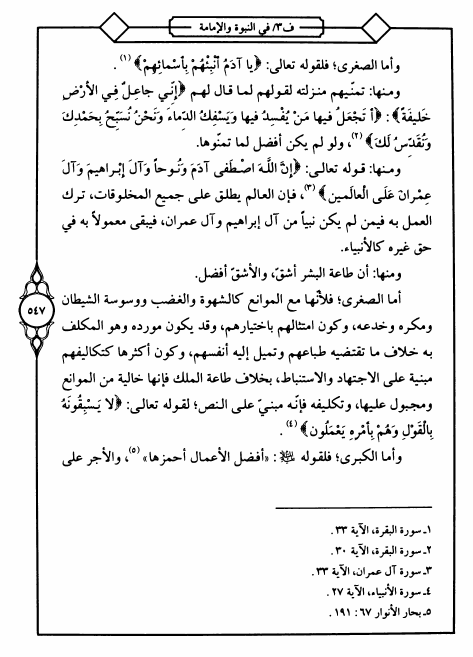 ف٣/ في النبوة والإمامة
وأما الصغرى؛ فلقوله تعالى: ﴿يا آدَمُ أَنْبِئْهُمْ بِأَسْمائِهِمْ﴾ (١).
ومنها: تمنّيهم منزلته لقولهم لما قال لهم ﴿إِنّي جاعِلٌ فِي الأَرْضِ
خَليفَةً﴾: ﴿أَ تَجْعَلُ فيها مَنْ يُفْسِدُ فيها وَيَسْفِكُ الدِّماءَ وَنَحْنُ نُسَبِّحُ بِحَمْدِكَ
وَنُقَدِّسُ لَكَ﴾ (٢)، ولو لم يكن أفضل لما تمنّوها.
ومنها: قوله تعالى: ﴿إِنَّ اللَّهَ اصْطَفى آدَمَ وَنُوحاً وَآلَ إِبْراهيمَ وَآلَ
عِمْرانَ عَلَى الْعالَمين﴾ (٣)، فإن العالم يطلق على جميع المخلوقات، ترك
العمل به فيمن لم يكن نبياً من آل إبراهيم وآل عمران، فيبقى معمولاً به في
حق غيره كالأنبياء.
ومنها: أن طاعة البشر أشقّ، والأشقّ أفضل.
أما الصغرى؛ فلأنّها مع الموانع كالشهوة والغضب ووسوسة الشيطان
ومكره وخدعه، وكون امتثالهم باختيارهم، وقد يكون مورده وهو المكلف
به خلاف ما تقتضيه طباعهم وتميل إليه أنفسهم، وكون أكثرها كتكاليفهم
مبنية على الاجتهاد والاستنباط، بخلاف طاعة الملك فإنها خالية من الموانع
ومجبول عليها، وتكليفه فإنّه مبنيّ على النص؛ لقوله تعالى: ﴿لا يَسْبِقُونَهُ
بِالْقَوْلِ وَهُمْ بِأَمْرِهِ يَعْمَلُون﴾ (٤).
وأما الكبرى؛ فلقوله ﷺ: «أفضل الأعمال أحمزها» (٥)، والأجر على
٥٤٧
١ـ سورة البقرة، الآية ٣٣.
٢ـ سورة البقرة، الآية ٣٠.
٣ـ سورة آل عمران، الآية ٣٣.
٤ـ سورة الأنبياء، الآية ٢٧.
٥ـ بحار الأنوار ٦٧: ١٩١.